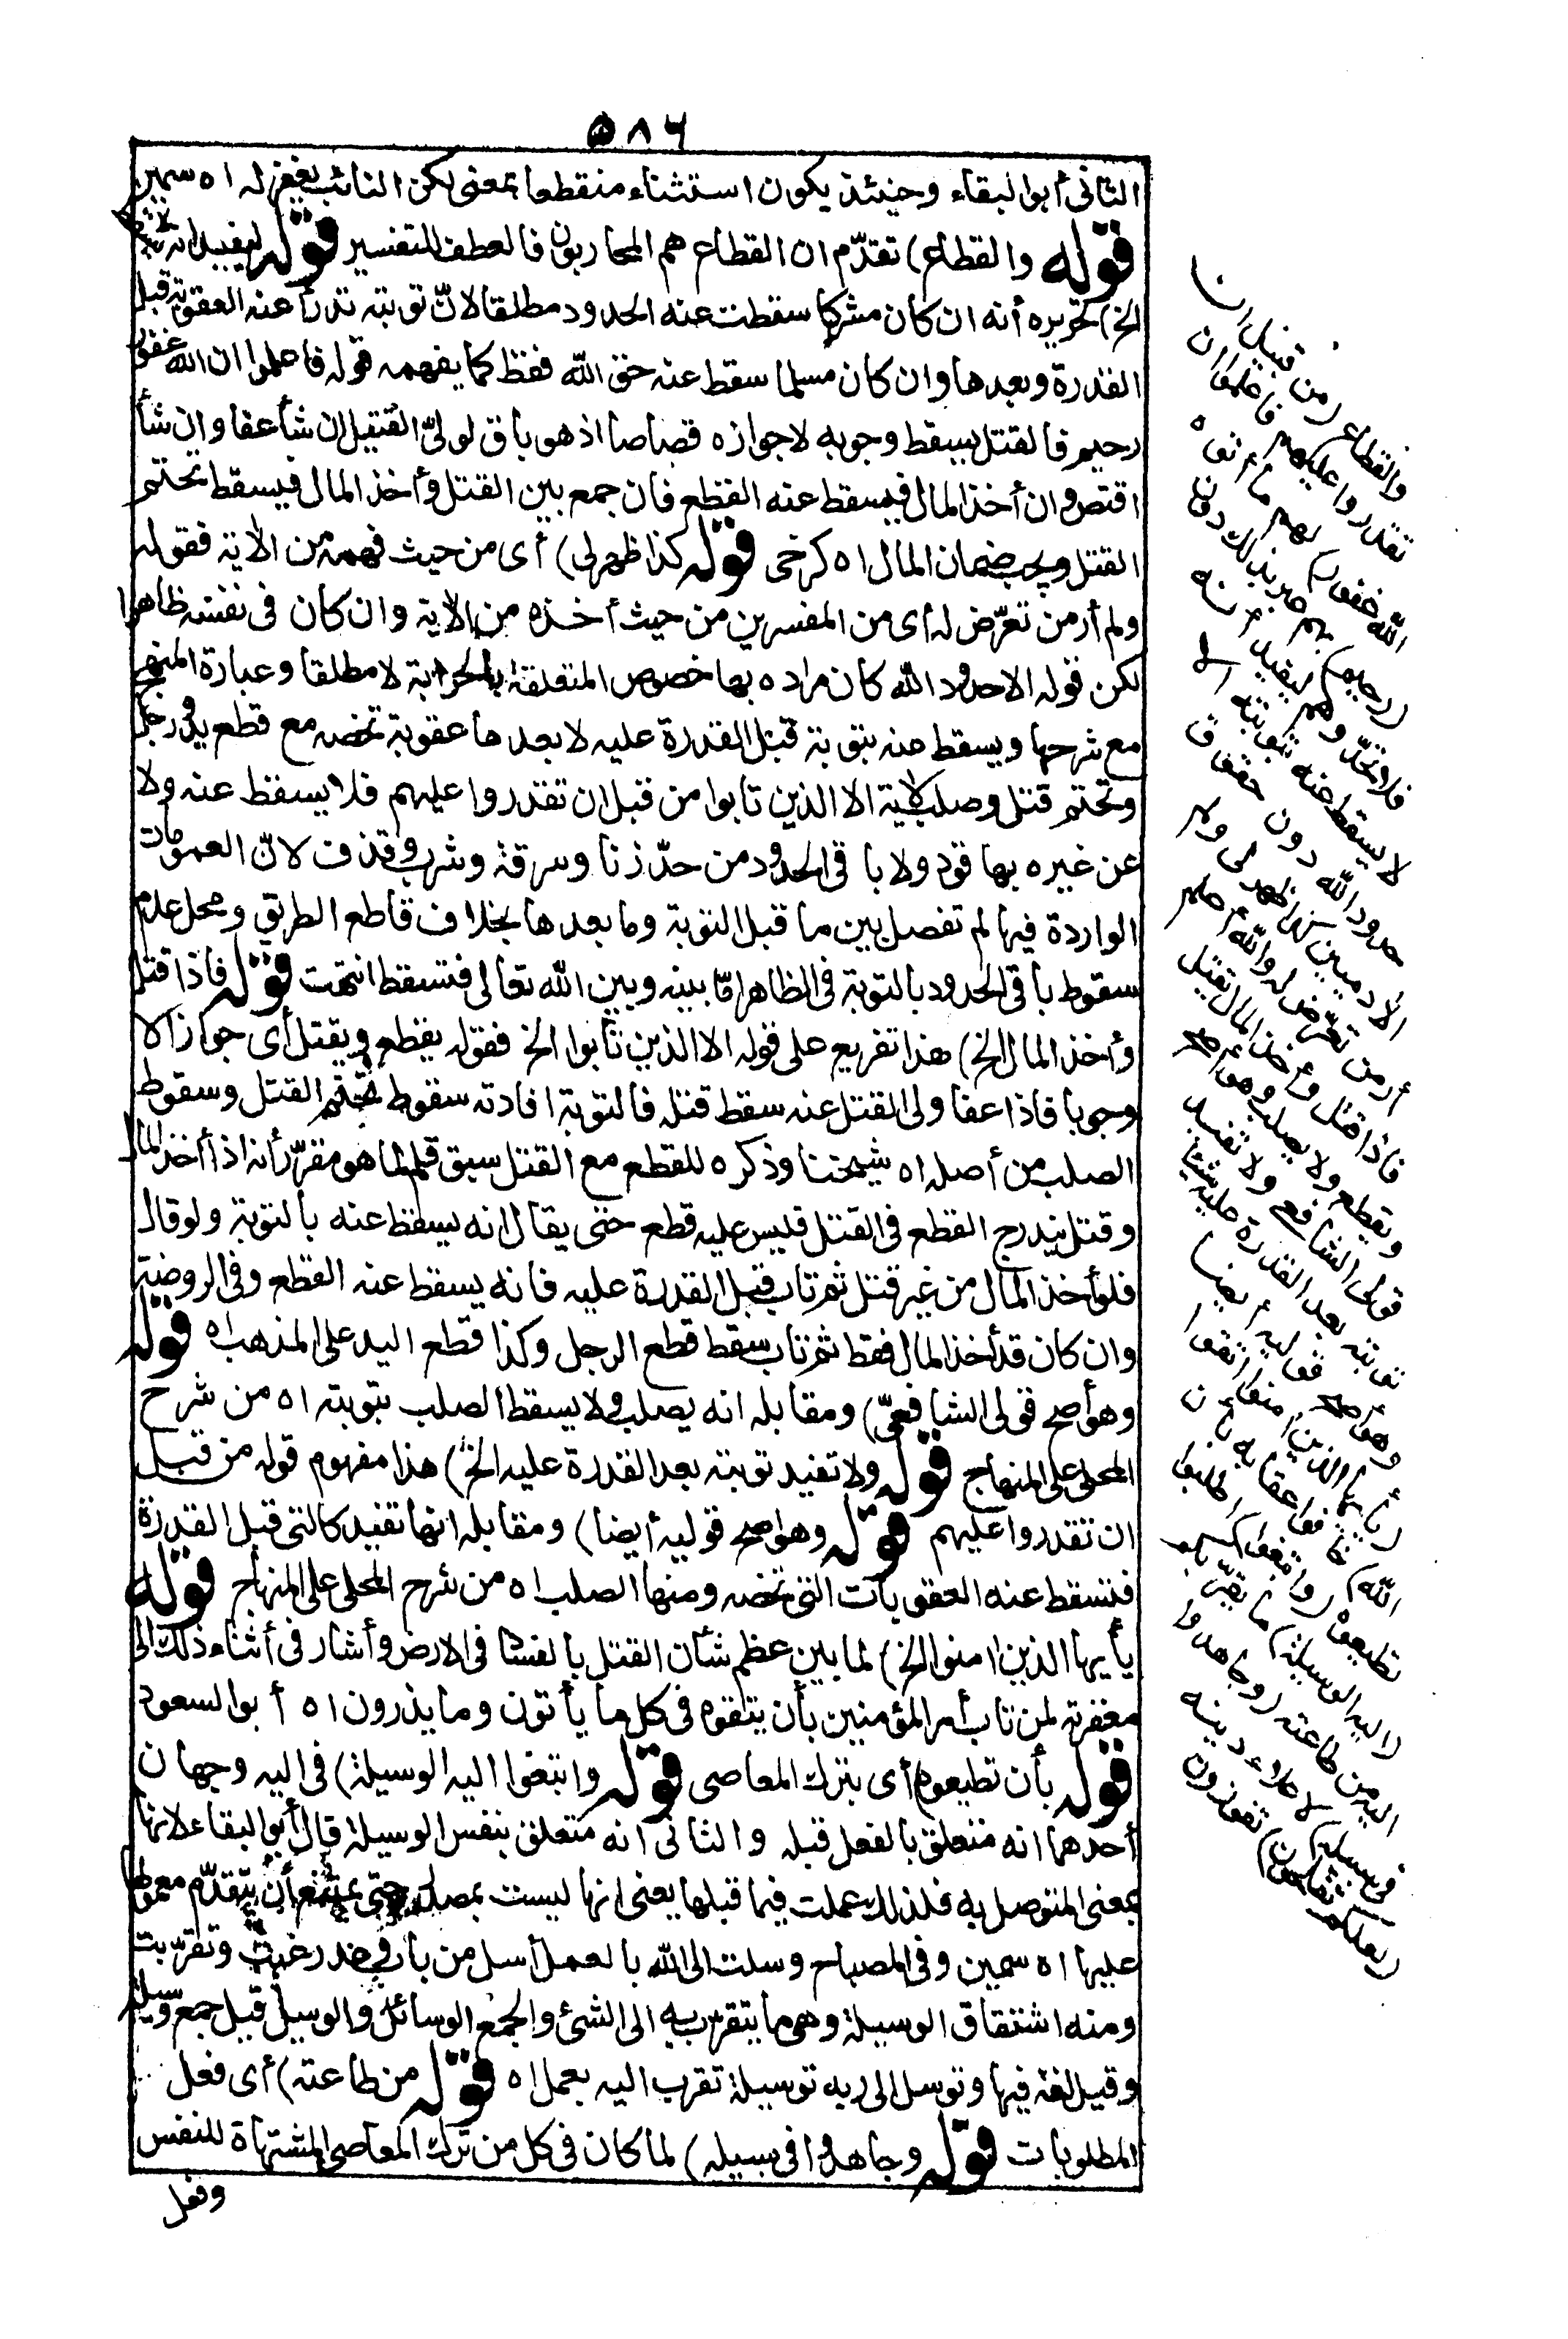 ٥٨٦
الثانى أبوالبقاء وحينئذ يكون استثناء منقطعا بمعنى لكن التائب يغفر له اه سمين
قوله والقطاع) تقدّم ان القطاع هم المحاربون فالعطف للتفسير قوله ليفيد انه لا يسقط
الخ) تحريره أنه ان كان مشركا سقطت عنه الحدود مطلقا لانّ توبته تدرأ عنه العقوبة قبل
القدرة وبعدها وان كان مسلما سقط عنه حق الله فقط كما يفهمه قوله فاعلموا ان الله غفور
رحيم فالقتل يسقط وجوبه لا جوازه قصاصا اذ هو باق لولىّ القتيل ان شأ عفا وان شأ
اقتص وان أخذ المال فيسقط عنه القطع فان جمع بين القتل وأخذ المال فيسقط تحتم
القتل ويجب ضمان المال اه كرخى قوله كذا ظهر لى) أى من حيث فهمه من الأية فقوله
ولم أر من تعرّض له أى من المفسرين من حيث أخذه من الأية وان كان فى نفسه ظاهرا
لكن قوله الاحدود الله كان مراده بها خصوص المتعلقة بالحرابة لا مطلقا وعبارة المنهج
مع شرحها ويسقط عنه بتوبة قبل القدرة عليه لا بعدها عقوبة تخصه مع قطع يد ورجل
وتحتم قتل وصلب لأية الا الذين تابوا من قبل ان تقدروا عليهم فلا يسقط عنه ولا
عن غيره بها قود ولا باقى الحدود من حدّ زنا وسرقة وشرب وقذف لانّ العمومات
الواردة فيها لم تفصل بين ما قبل التوبة وما بعدها بخلاف قاطع الطريق ومحل عدم
سقوط باقى الحدود بالتوبة فى الظاهر امّا بينه وبين الله تعالى فتسقط انتهت قوله فاذا قتل
وأخذ المال الخ) هذا تفريع على قوله الا الذين تابوا الخ فقوله يقطع ويقتل أى جوازا لا
وجوبا فاذا عفا ولى القتل عنه سقط قتله فالتوبة افادته سقوط تحتم القتل وسقوط
الصلب من أصله اه شيخنا وذكره للقطع مع القتل سبق قلم لما هو مقرّر أنه اذا أخذ المال
وقتل يندرج القطع فى القتل فليس عليه قطع حتى يقال انه يسقط عنه بالتوبة ولو قال
فلو أخذ المال من غير قتل ثم تاب قبل القدرة عليه فانه يسقط عنه القطع وفى الروضة
وان كان قد أخذ المال فقط ثم تاب سقط قطع الرجل وكذا قطع اليد على المذهب اه قوله
وهو أصح قولى الشافعىّ) ومقابله انه يصلب ولا يسقط الصلب بتوبته اه من شرح
المحلى على المنهاج قوله ولا تفيد توبته بعد القدرة عليه الخ) هذا مفهوم قوله من قبل
ان تقدروا عليهم قوله وهو اصح قوليه أيضا) ومقابله انها تفيد كالتى قبل القدرة
فتسقط عنه العقوبات التى تخصه ومنها الصلب اه من شرح المحلى على المنهاج قوله
يأيها الذين امنوا الخ) لما بين عظم شأن القتل بالفساد فى الارض وأشار فى أثناء ذلك الى
مغفرته لمن تاب أمر المؤمنين بأن يتقوه فى كل ما يأتون وما يذرون اه أبوالسعود
قوله بأن تطيعوه) أى بترك المعاصى قوله وابتغوا اليه الوسيلة) فى اليه وجهان
أحدهما انه متعلق بالفعل قبله والثانى انه متعلق بنفس الوسيلة قال أبوالبقاء لانها
بمعنى المتوصل به فلذلك عملت فيما قبلها يعنى انها ليست بمصدر حتى يمتنع أن يتقدّم معمولها
عليها اه سمين وفى المصباح وسلت الى الله بالعمل أسل من باب وعد رغبت وتقرّبت
ومنه اشتقاق الوسيلة وهى ما يتقرب به الى الشئ والجمع الوسائل والوسيل قيل جمع وسيلة
وقيل لغة فيها وتوسل الى ربه توسيلة تقرب اليه بعمل اه قوله من طاعته) أى فعل
المطلوبات قوله وجاهدوا فى سبيله) لما كان فى كل من ترك المعاصى المشتهاة للنفس
وفعل
والقطاع (من قبل ان
تقدروا عليهم فاعلموا ان
الله غفور) لهم ما أتوه
(رحيم) بهم عبر بذلك دون
فلا تحدّوهم ليفيد أنه
لا يسقط عنه بتوبته الا
حدود الله دون حقوق
الأدميين كذا ظهر لى ولم
أر من تعرّض له والله أعلم
فاذا قتل وأخذ المال يقتل
ويقطع ولا يصلب وهو أصح
قولى الشافعى ولا تفيد
توبته بعد القدرة عليه شيئا
وهو أصح قوليه أيضا
(يأيها الذين امنوا اتقوا
الله) خافوا عقابه بأن
تطيعوه (وابتغوا) اطلبوا
(اليه الوسيلة) ما يقرّبكم
اليه من طاعته (وجاهدوا
فى سبيله) لاعلاء دينه
(لعلكم تفلحون) تفوزون